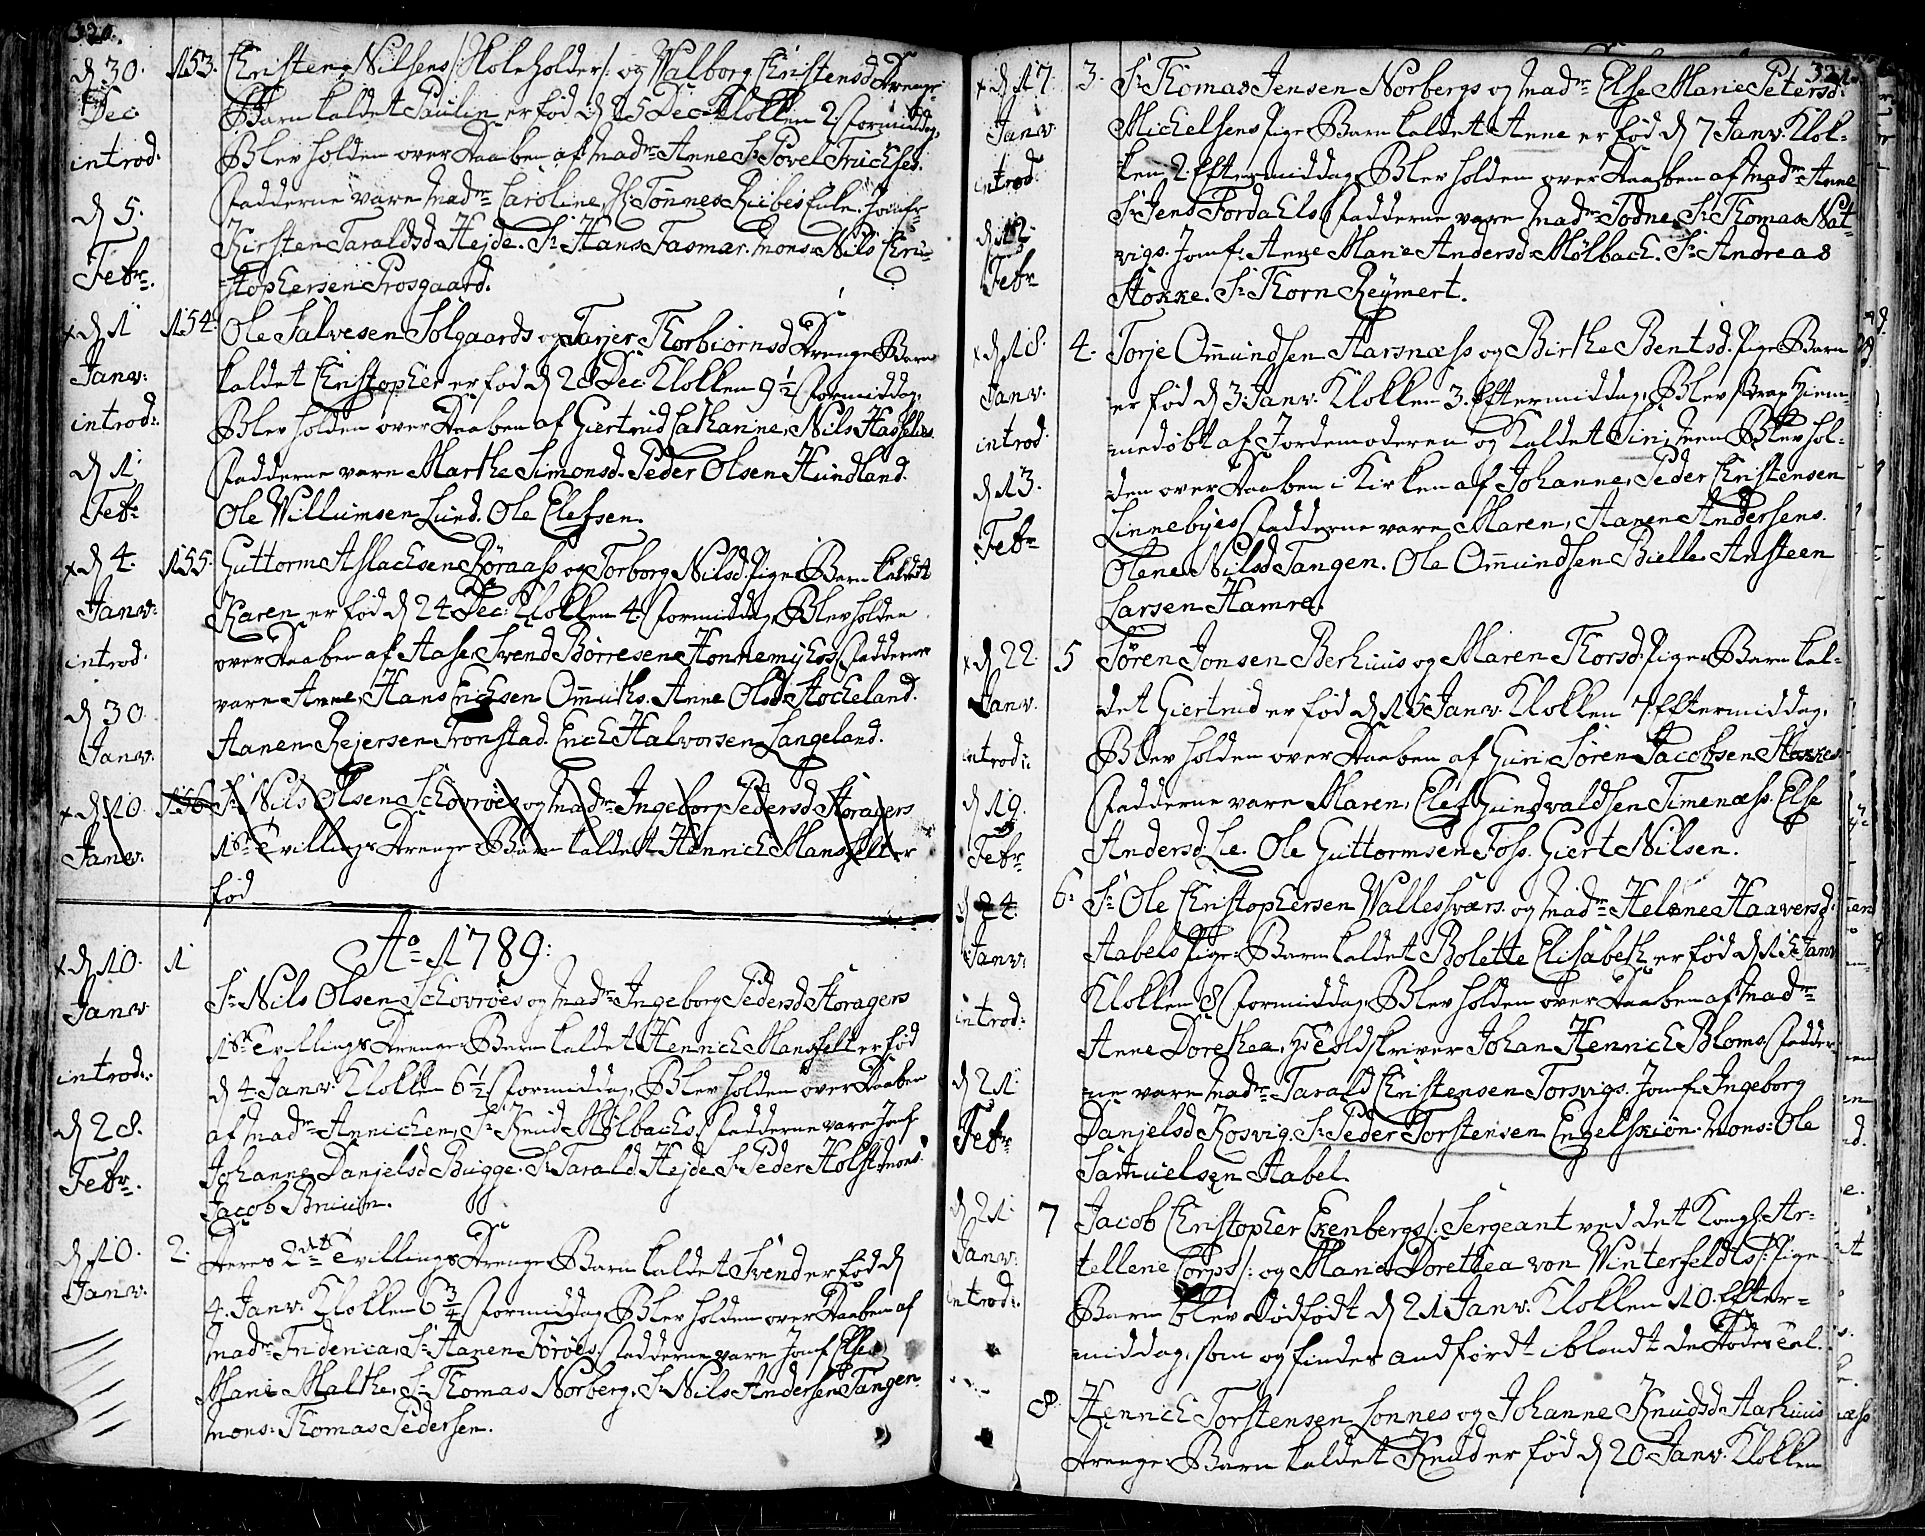 320.
d 30. Dec. introd: d 5. Febr.
153. Christen Nilsens /: Skoleholder :/ og Walborg Christensd Drenge-
Barn kaldet Paulin er fød d 25 Dec. Klokken 2. Formiddag,
Blev holden over Daaben af Madme Anne Sr. Povel Truchses.
Fadderne vare Madme Caroline, Tønnes Ribes Enke. Jomfr.
Kirsten Taraldsd Hejde. Sr. Hans Fasmar. Mons. Nils Chri-
stophersen Prosgaard.
x d 1 Janv: introd: d 1 Febr
154. Ole Salvesen Solgaards og Tarjer Thorbiørnsd Drenge Barn
kaldet Christopher er fød d 28 Dec. Klokken 9½ Formiddag,
Blev holden over Daaben af Giertrud Catharine, Nils Hasseles.
Fadderne vare Marthe Simonsd. Peder Olsen Hundland.
Ole Willumsen Lund. Ole Elefsen.
x d 4. Janv: introd. d 30 Janv.
155. Guttorm Aslachsen Røraass og Torborg Nilsd. Pige Barn kaldet
Karen er fød d 24 Dec. Klokken 4. Formiddag Blev holden
over Daaben af Aase, Svend Børresen Honnemyhrs Fadderne
vare Anne, Hans Erichsen Omuths. Anne Olsd Stocheland.
Aanen Rejersen Tronstad. Erich Halvorsen Langeland.
x d 10. Janv.
156 Sr. Nils Olsen Schovrøes og Madme Ingeborg Pedersd Storagers
1ste Tvillings Drenge Barn kaldet Henrich Mansfelt er
fød
Ao 1789:
x d 10. Janv introd: d 28. Febr.
1 Sr. Nils Olsen Schovrøes og Madme Ingeborg Pedersd Storagers
1ste Tvillings Drenge Barn kaldet Henrich Mansfelt er fød
d 4 Janv. Klokken 6½ Formiddag, Blev holden over Daaben
af Madme Annichen, Sr. Knud Mølbachs, Fadderne vare Jomf.
Johanne Danjelsd Bugge. Sr. Tarald Hejde Sr. Peder Holst Mons:
Jacob Bruun.
d 10. Janv.
2. Deres 2den Tvillings Drenge Barn kaldet Svend er fød d
4. Janv. Klokken 6¾ Formiddag Blev holden over Daaben af
Madme Fridericia, Sr. Aanen Sørøes, Fadderne vare Jomf. Else
Marie Malthe, Sr. Thomas Norberg, Sr. Nils Andersen Tangen.
Mons: Thomas Pedersen.
321.
x d 17. Janv introd: d 12 Febr
3. Sr. Thomas Jensen Norbergs og Madme Else Marie Petersd:
Michelsens Pige Barn kaldet Anne er fød d 7 Janv. Klok-
ken 2. Eftermiddag, Blev holden over Daaben af Madme Anne
Sr. Jens Tordahls Fadderne vare Madme Todne, Sr. Thomas Nat-
vigs. Jomf. Anne Marie Andersd Mølbach. Sr. Andreas
Stokke. Sr. Thorn Reymert.
x d 18. Janv. introd: d 13. Febr
4. Torje Omundsen Harsnæss og Birthe Bentsd. Pige Barn
er fød d 3 Janv. Klokken 3. Eftermiddag, Blev strax Hiem-
medøbt af Jordemoderen og kaldet Siri, men Blev hol-
den over Daaben i Kirken af Johanne, Peder Christensen
Linnebyes Fadderne vare Maren, Aanen Andersens.
Olene Nilsd Tangen. Ole Omundsen Bielle. Ansteen
Larsen Hamre.
x d 22. Janv. introd: d 19. Febr
5 Søren Jonsen Berhuus og Maren Thorsd. Pige Barn kal-
det Giertrud er fød d 15 Janv. Klokken 7. Eftermiddag,
Blev holden over Daaben af Guri, Søren Jacobsen Stokkes
Fadderne vare Maren, Elef Gundvaldsen Timenæss. Else
Andersd. Lie. Ole Guttormsen Foss. Giert Nilsen.
d 24 Janv: introd: d 21. Febr
6. Sr. Ole Christophersen Wallessværs og Madme Helene Haaversd:
Aabels Pige Barn kaldet Bolette Elisabeth er fød d 15 Janv
Klokken 8 Formiddag, Blev holden over Daaben af Madme
Anne Dorethea, Hr. Toldskriver Johan Henrich Bloms Fadder-
ne vare Madme Tarald Christensen Torsvigs. Jomf. Ingeborg
Danjelsd Kosvig. Sr. Peder Torstensen Engelskiøn. Mons: Ole
Samuelsen Aabel.
d 21. Janv: introd:
7 Jacob Christopher Ekenbergs /: Sergeant ved det Kongl. Ar-
tellerie Corps :/ og Marie Dorethea von Winterfeldts Pige
Barn blev Dødfødt d 21 Janv. Klokken 10. Efter-
middag, som og findes andført iblandt de Dødes Tal.
8. Henrich Torstensen Sonnes og Johanne Knudsd Aarhuus
Drenge Barn kaldet Knud er fød d 20 Janv. Klokken